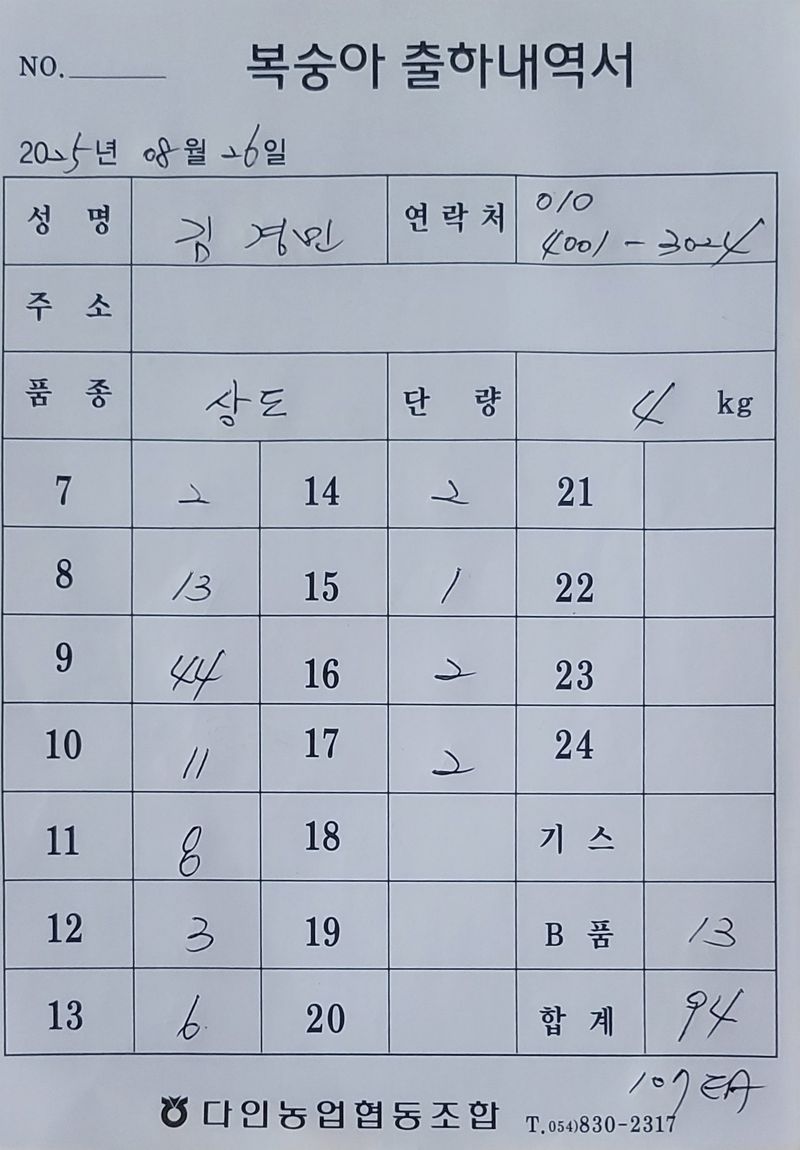 NO. 복숭아 출하내역서
2025년 08월 26일
성 명 김 경민 연락처 010
4001-3024
주 소
품 종 상도 단 량 4 kg
7 2 14 2 21
8 13 15 1 22
9 44 16 2 23
10 11 17 2 24
11 8 18 기 스
12 3 19 B 품 13
13 6 20 합 계 94
107EA
다인농업협동조합 T.054)830-2317